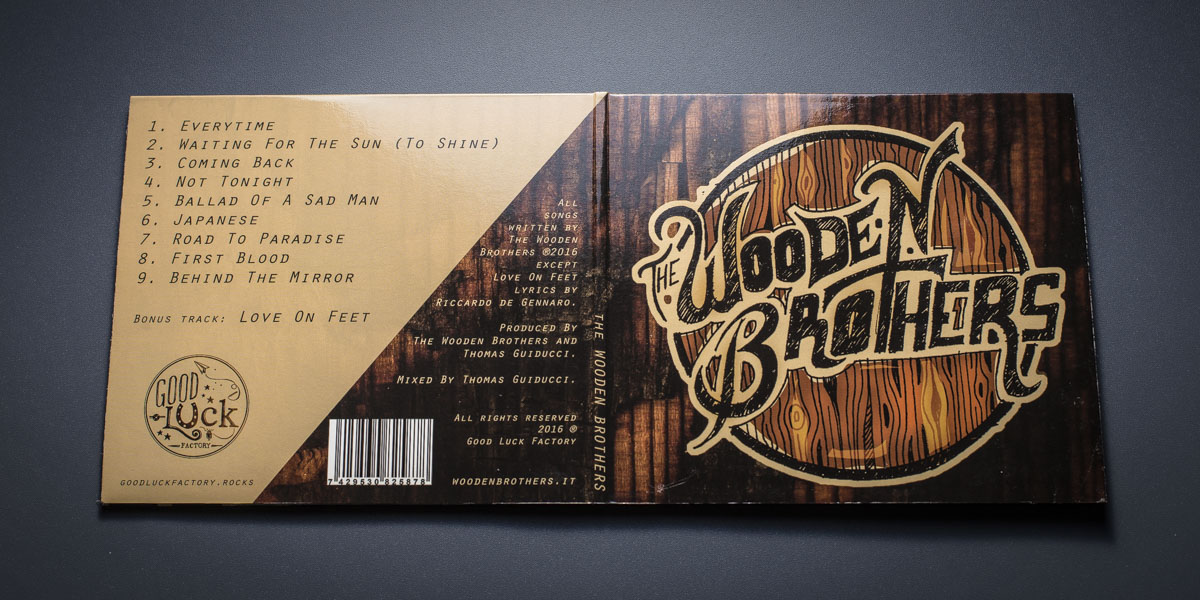 1. Everytime
2. Waiting For The Sun (To Shine)
3. Coming Back
4. Not Tonight
5. Ballad Of A Sad Man
6. Japanese
7. Road To Paradise
8. First Blood
9. Behind The Mirror
Bonus track: Love On Feet
GOOD
LUck
FACTORY
goodluckfactory.rocks
All
songs
written by
The Wooden
Brothers ®2016
except
Love On Feet
lyrics by
Riccardo de Gennaro.
Produced By
The Wooden Brothers and
Thomas Guiducci.
Mixed By Thomas Guiducci.
All rights reserved
2016 ©
Good Luck Factory
7 429530 825878
woodenbrothers.it
THE WOODEN BROTHERS
THE WOODEN
BROTHERS